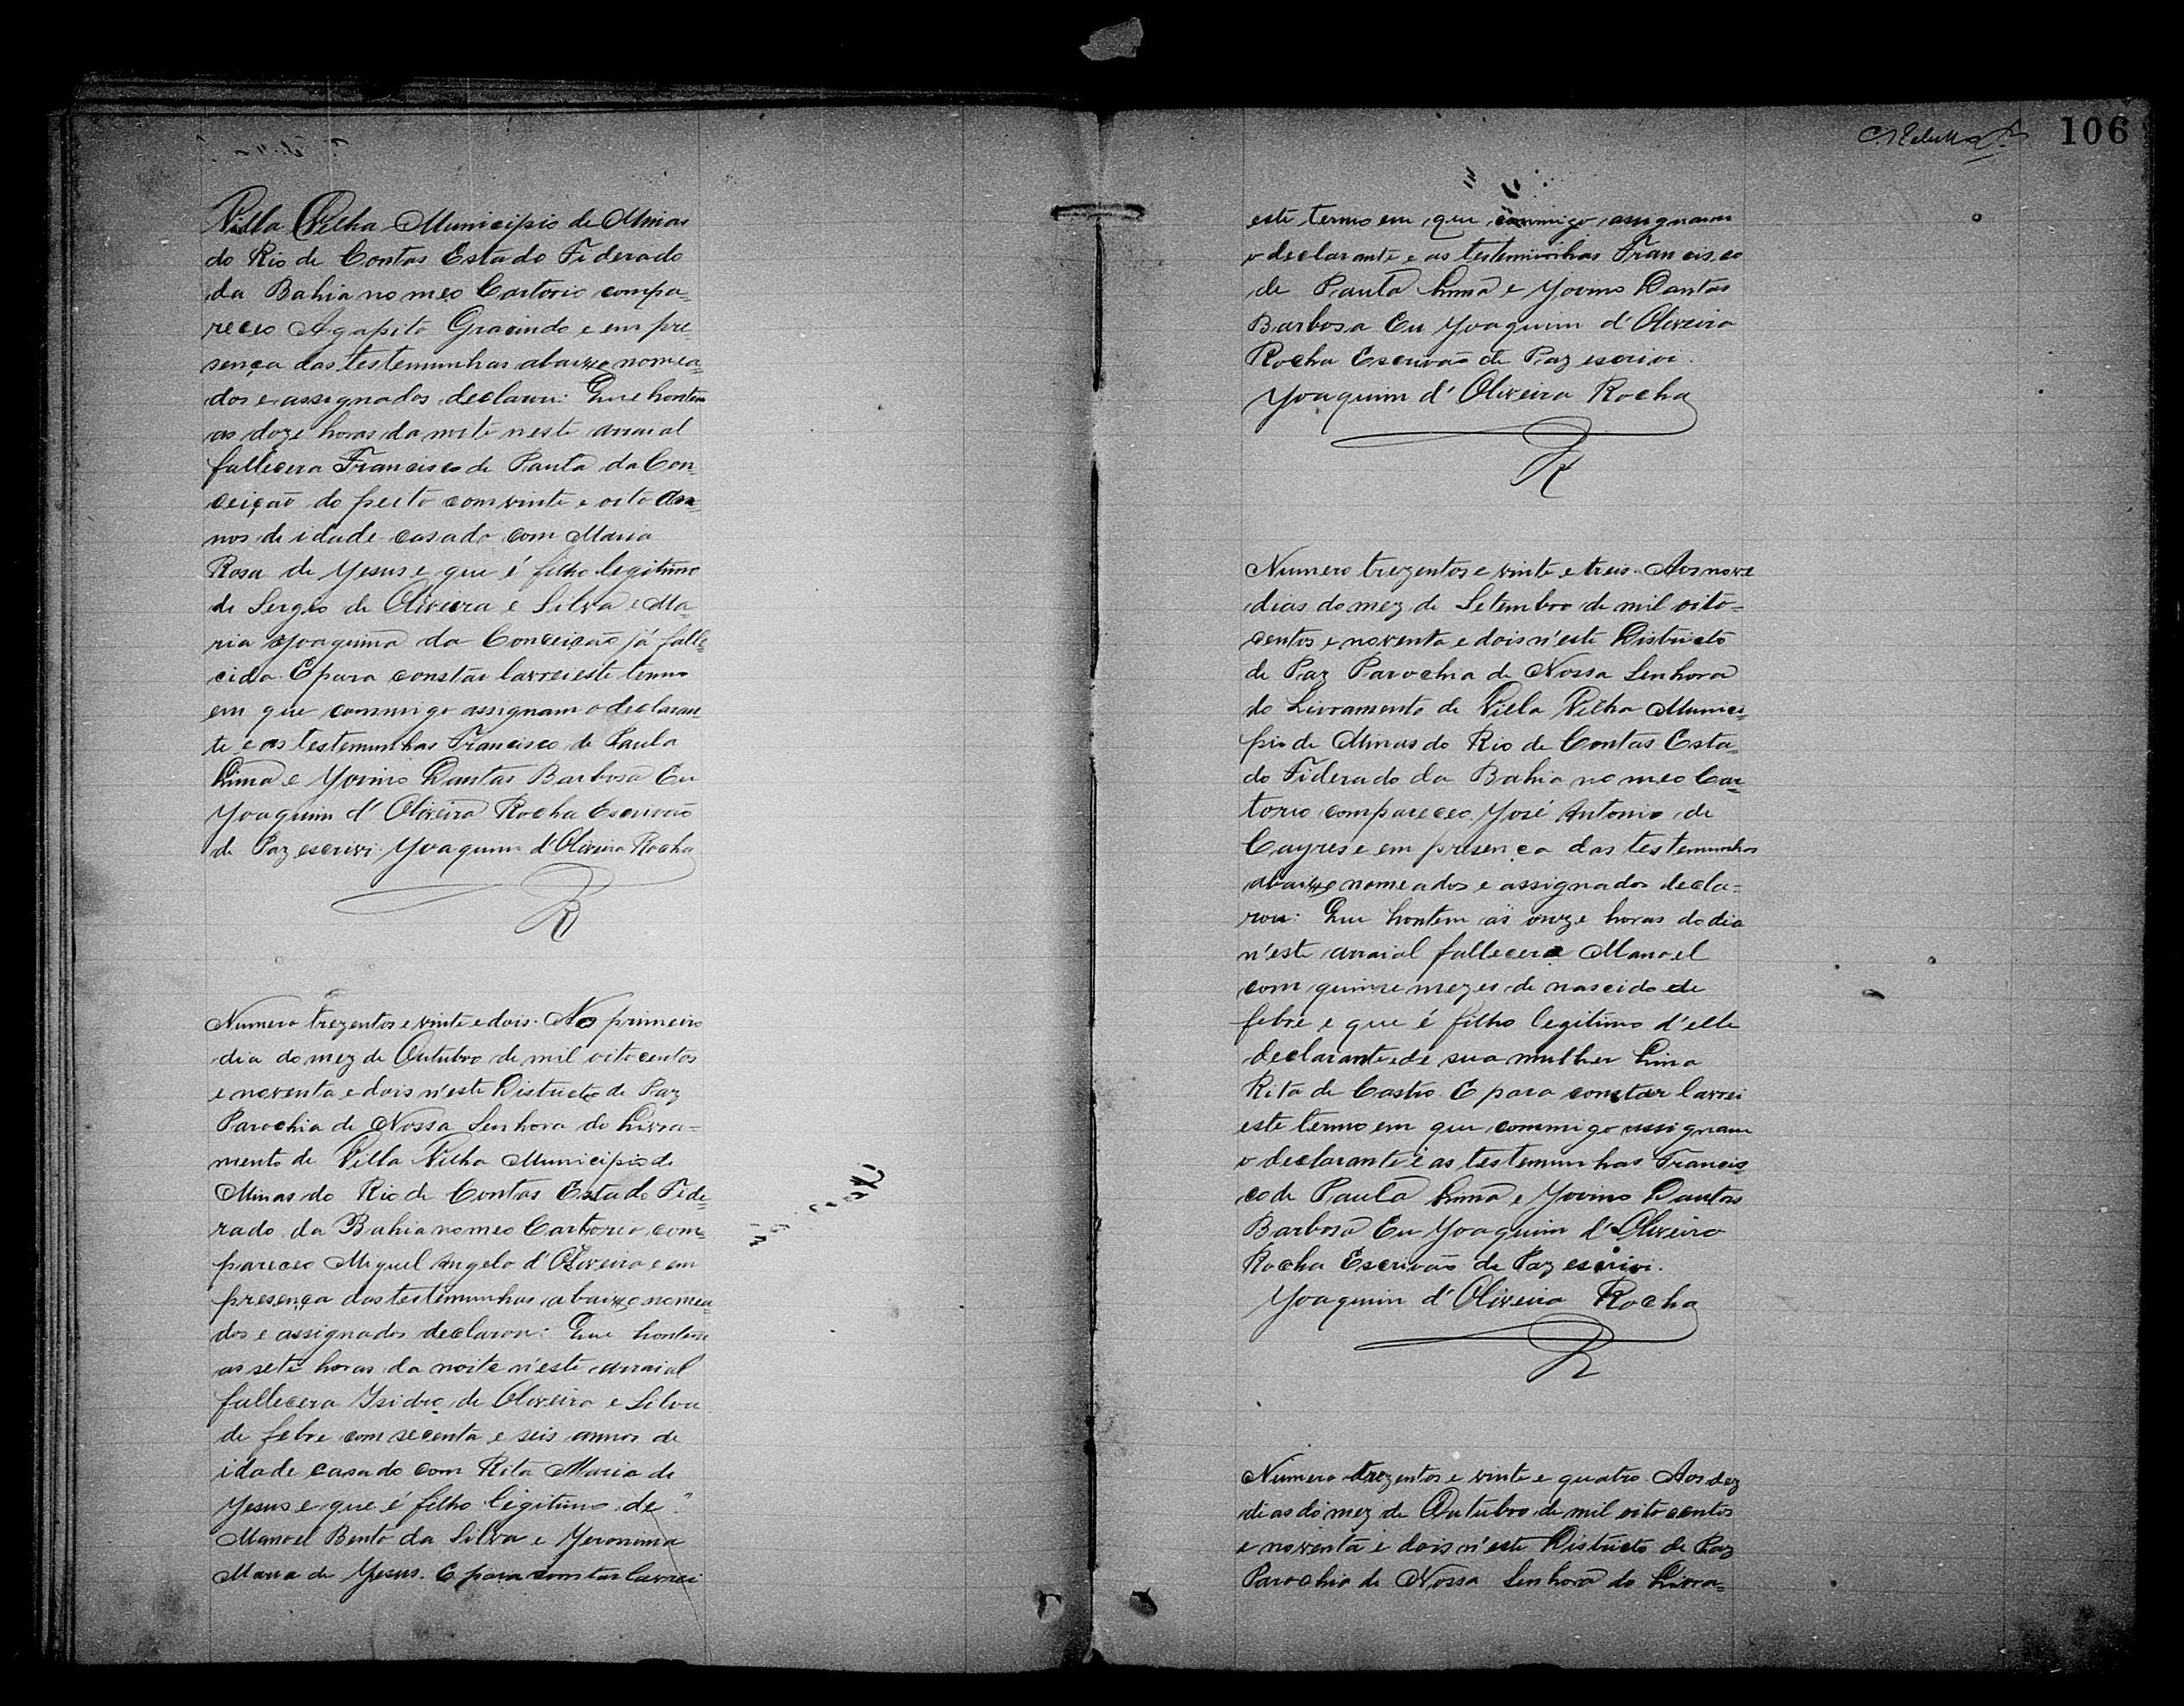 Villa Velha Municipio de Minas
do Rio de Contas Estado Fiderado
da Bahia no meo Cartorio compa=
receo Agapito Gracindo e em pre=
sença das testemunhas abaixo nomea=
dos e assignados declarou: Que hontem
as doze horas da noite neste arraial
fallecera Francisco de Paula da Con=
ceição do peito com vinte e oito an=
nos de idade casado com Maria
Rosa de Yesus e que é filho legitimo
de Sergio de Oliveira e Silva e Ma=
ria Yoaquima da Conceição já falle=
cida. E para constar lavrei este termo
em que commigo assignam o declaran=
te e as testemunhas Francisco de Paula
Lima e Yovino Dantas Barbosa Eu
Yoaquim d'Oliveira Rocha Escrivão
de Paz escrivi. Yoaquim d'Oliveira Rocha
R
Numero trezentos e vinte e dois. No primeiro
dia do mez de Outubro de mil oito centos
e noventa e dois n'este Districto de Paz
Parochia de Nossa Senhora do Livra=
mento de Villa Velha Municipio de
Minas do Rio de Contas Estado Fide=
rado da Bahia no meo Cartorio com=
pareceo Miguel Angelo d'Oliveira e em
presença das testemunhas abaixo nomea=
dos e assignados declarou: Que hontem
as sete horas da noite n'este arraial
fallecera Ysidro de Oliveira e Silva
de febre com secenta e seis annos de
idade casado com Rita Maria de
Yesus e que é filho legitimo de
Manoel Bento da Silva e Yeronima
Maria de Yesus. E para constar lavrei
106
este termo em que commigo assignam
o declarante e as testemunhas Francisco
de Paula Lima e Yovino Dantas
Barbosa Eu Yoaquim d'Oliveira
Rocha Escrivão de Paz escrivi.
Yoaquim d'Oliveira Rocha
R
Numero trezentos e vinte e treis. Aos nove
dias do mez de Setembro de mil oito=
centos e noventa e dois n'este Districto
de Paz Parochia de Nossa Senhora
do Livramento de Villa Velha Munici=
pio de Minas do Rio de Contas Esta=
do Fiderado da Bahia no meo Car=
torio compareceo Yosé Antonio de
Cayres e em presença das testemunhas
abaixo nomeados e assignados decla=
rou: Que hontem as onze horas do dia
n'este arraial fallecera Manoel
com quinze mezes de nascido de
febre e que é filho legitimo d'elle
declarante e de sua mulher Lina
Rita de Castro. E para constar lavrei
este termo em que commigo assignam
o declarante e as testemunhas Francis=
co de Paula Lima e Yovino Dantas
Barbosa Eu Yoaquim d'Oliveira
Rocha Escrivão de Paz escrivi.
Yoaquim d'Oliveira Rocha
R
Numero trezentos e vinte e quatro. Aos dez
dias do mez de Outubro de mil oito centos
e noventa e dois n'este Districto de Paz
Parochia de Nossa Senhora do Livra=